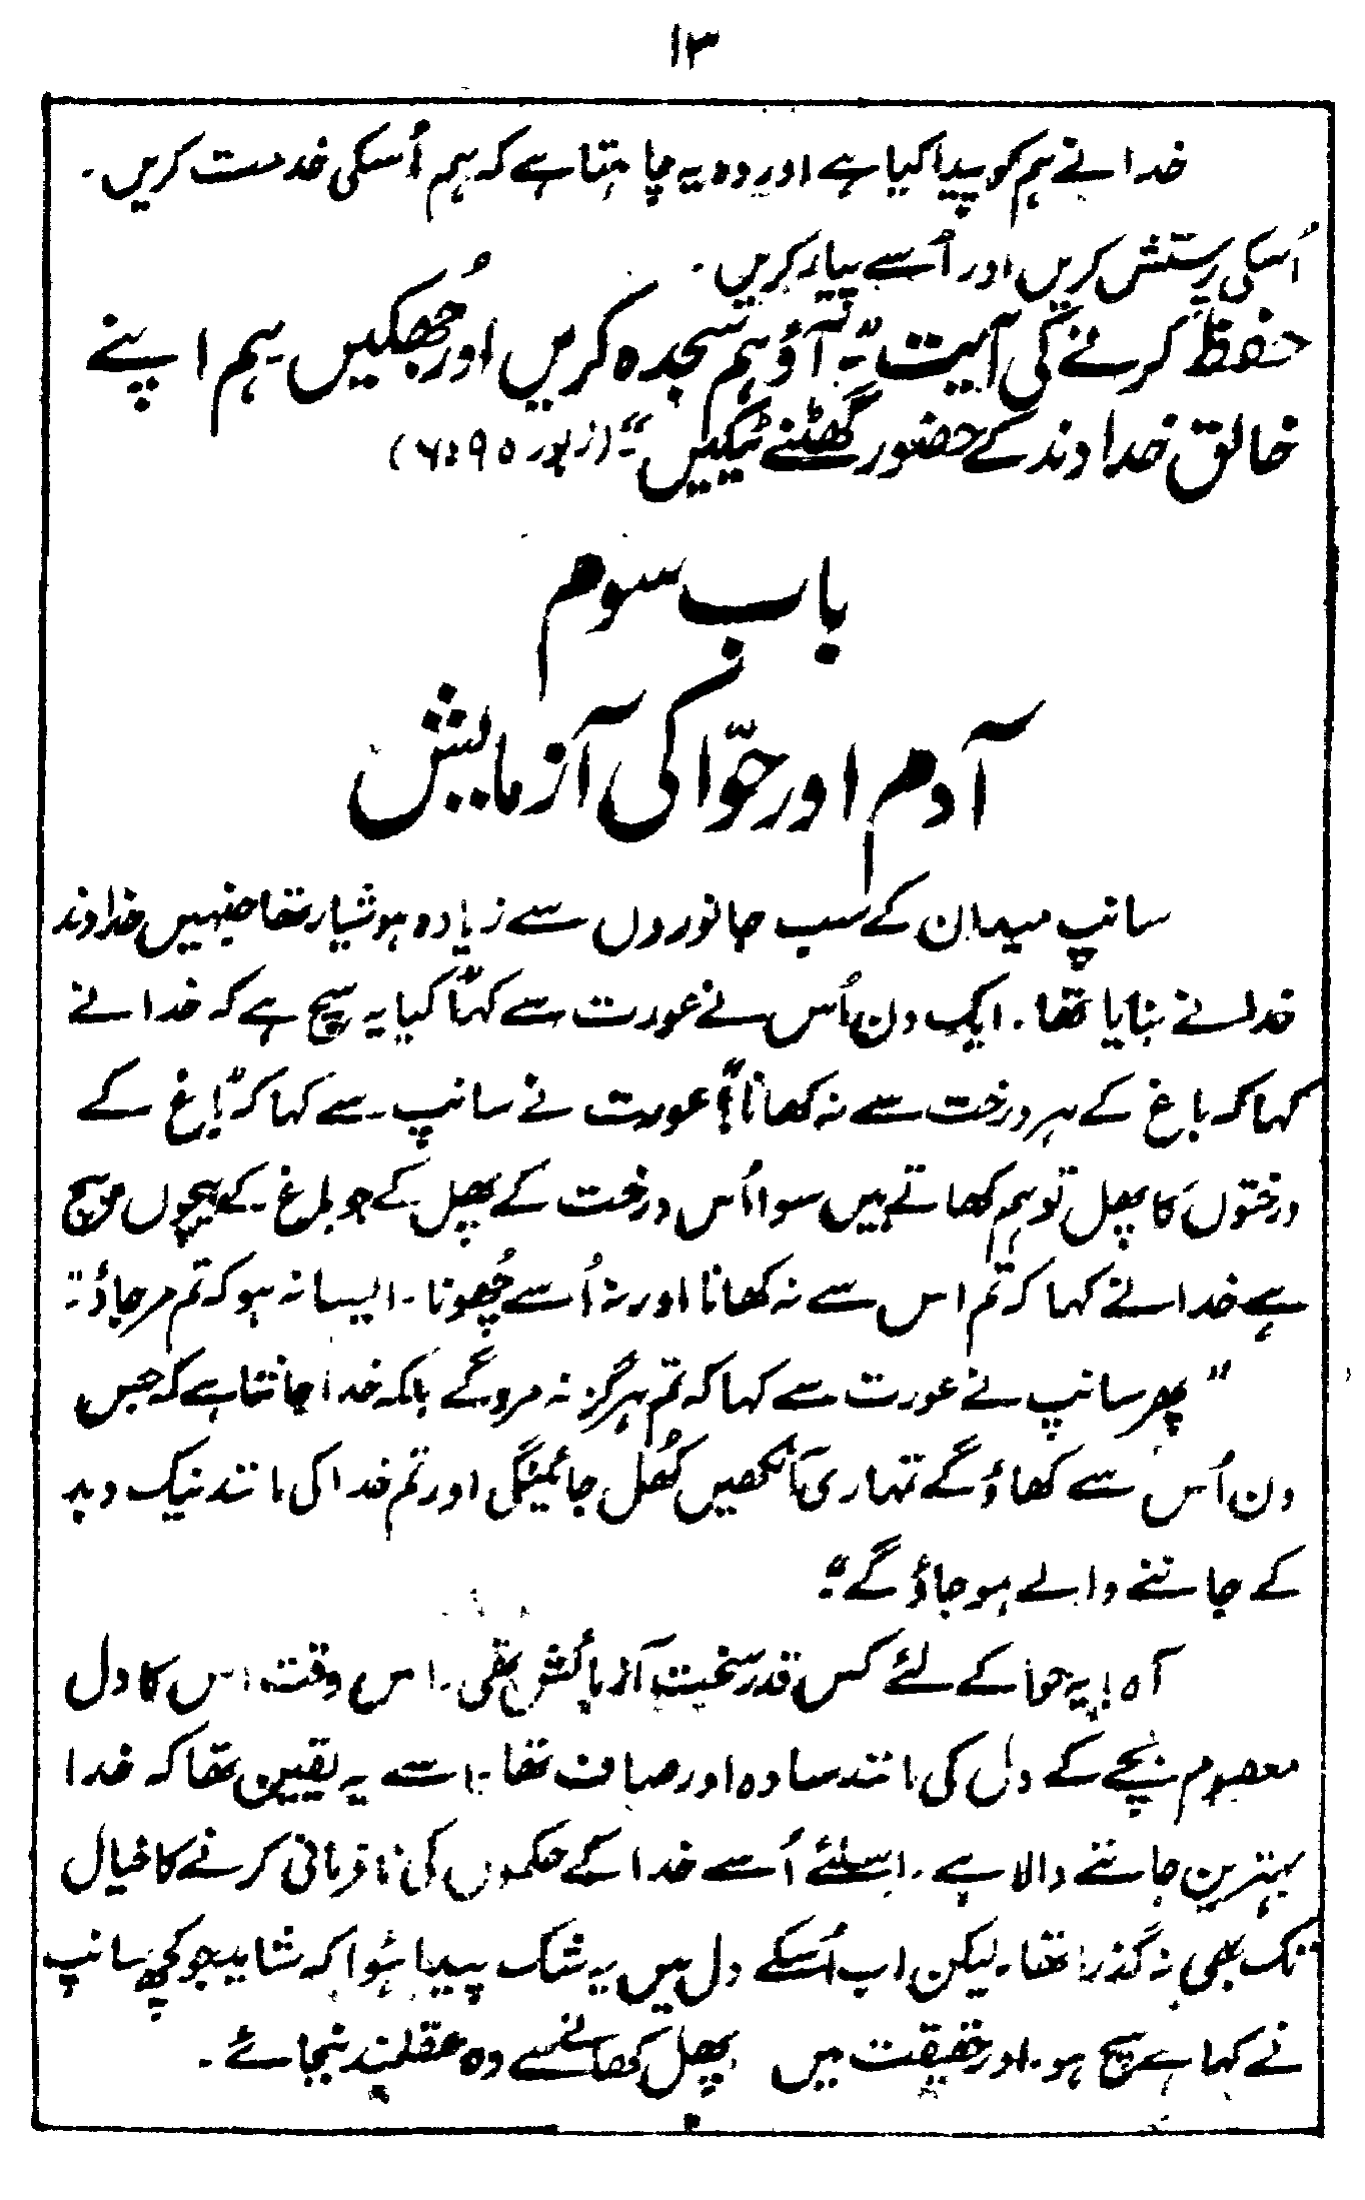 ۱۳
خدا نے ہم کو پیدا کیا ہے اور وہ یہ چاہتا ہے کہ ہم اُسکی خدمت کریں۔
اُسکی پرستش کریں اور اُسے پیار کریں۔
حفظ کرنے کی آیت:۔ "آؤ ہم سجدہ کریں اور جُھکیں ہم اپنے
خالق خداوند کے حضور گھٹنے ٹیکیں"۔ (زبور ۹۵:۶)
باب سوم
آدم اور حوّا کی آزمایش
سانپ میدان کے سب جانوروں سے زیادہ ہوشیار تھا جنہیں خداوند
خدا نے بنایا تھا۔ ایک دن اُس نے عورت سے کہا "کیا یہ سچ ہے کہ خدا نے
کہا کہ باغ کے ہر درخت سے نہ کھانا"؟ عورت نے سانپ سے کہا کہ "باغ کے
درختوں کا پھل تو ہم کھاتے ہیں سوا اُس درخت کے پھل کے جو باغ کے بیچوں بیچ
ہے خدا نے کہا کہ تم اس سے نہ کھانا اور نہ اُسے چُھونا۔ ایسا نہ ہو کہ تم مر جاؤ"۔
"پھر سانپ نے عورت سے کہا کہ تم ہرگز نہ مروگے بلکہ خدا جانتا ہے کہ جس
دن اُس سے کھاؤ گے تمہاری آنکھیں کُھل جائینگی اور تم خدا کی مانند نیک و بد
کے جاننے والے ہو جاؤ گے"۔
آہ! یہ حوا کے لئے کس قدر سخت آزمائش تھی۔ اس وقت اس کا دل
معصوم بچے کے دل کی مانند سادہ اور صاف تھا۔ اسے یہ یقین تھا کہ خدا
بہترین جاننے والا ہے۔ اسلئے اُسے خدا کے حکموں کی نافرمانی کرنے کا خیال
تک بھی نہ گذرا تھا۔ لیکن اب اُسکے دل میں یہ شک پیدا ہُوا کہ شاید جو کچھ سانپ
نے کہا ہے سچ ہو۔ اور حقیقت میں پھل کھانے سے وہ عقلمند بنجائے۔